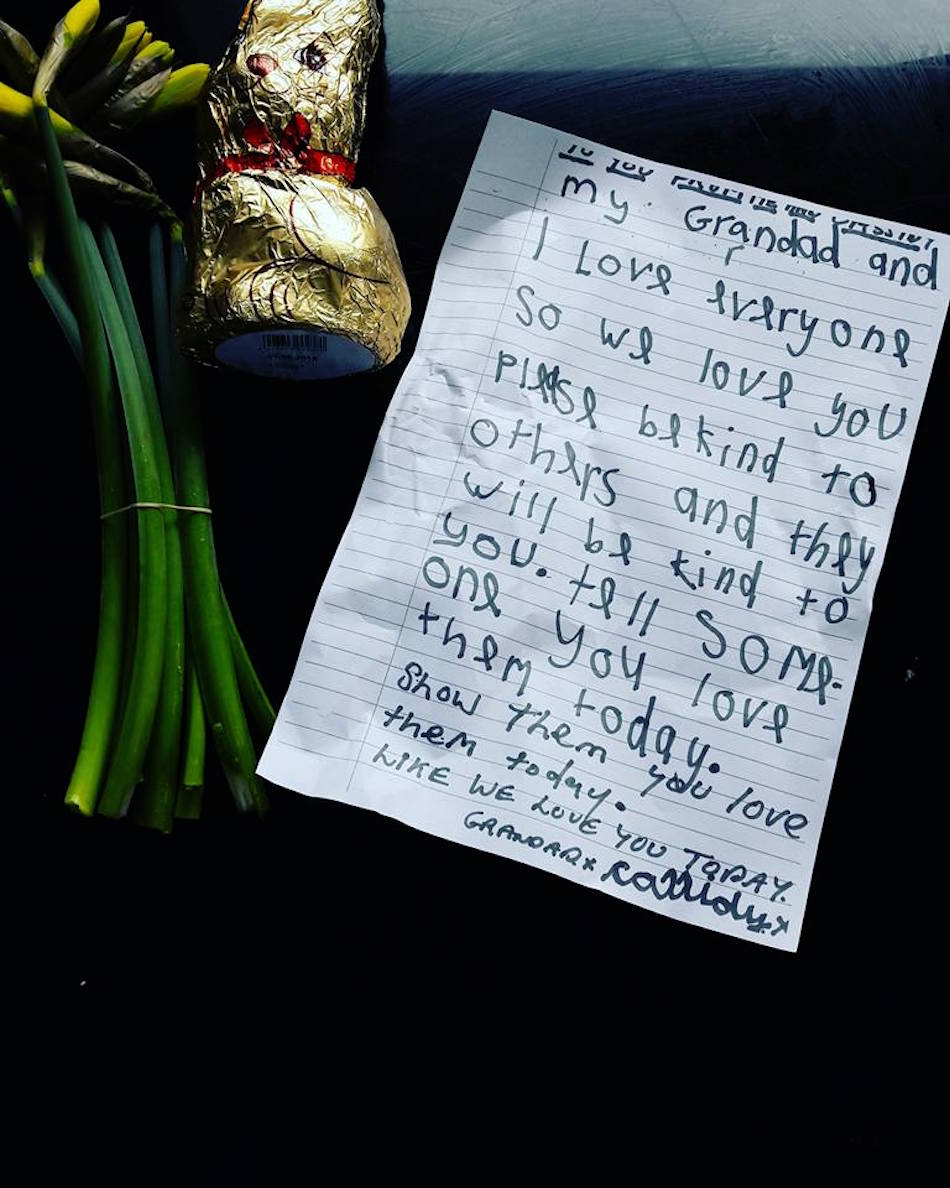 TO YOU FROM ME AND CASSIDY
my Grandad and
I Love everyone
So we love you
please be kind to
others and they
will be kind to
you. tell some-
one you love
them today.
Show them you love
them today.
LIKE WE LOVE YOU TODAY.
GRANDAD x Cassidy. x